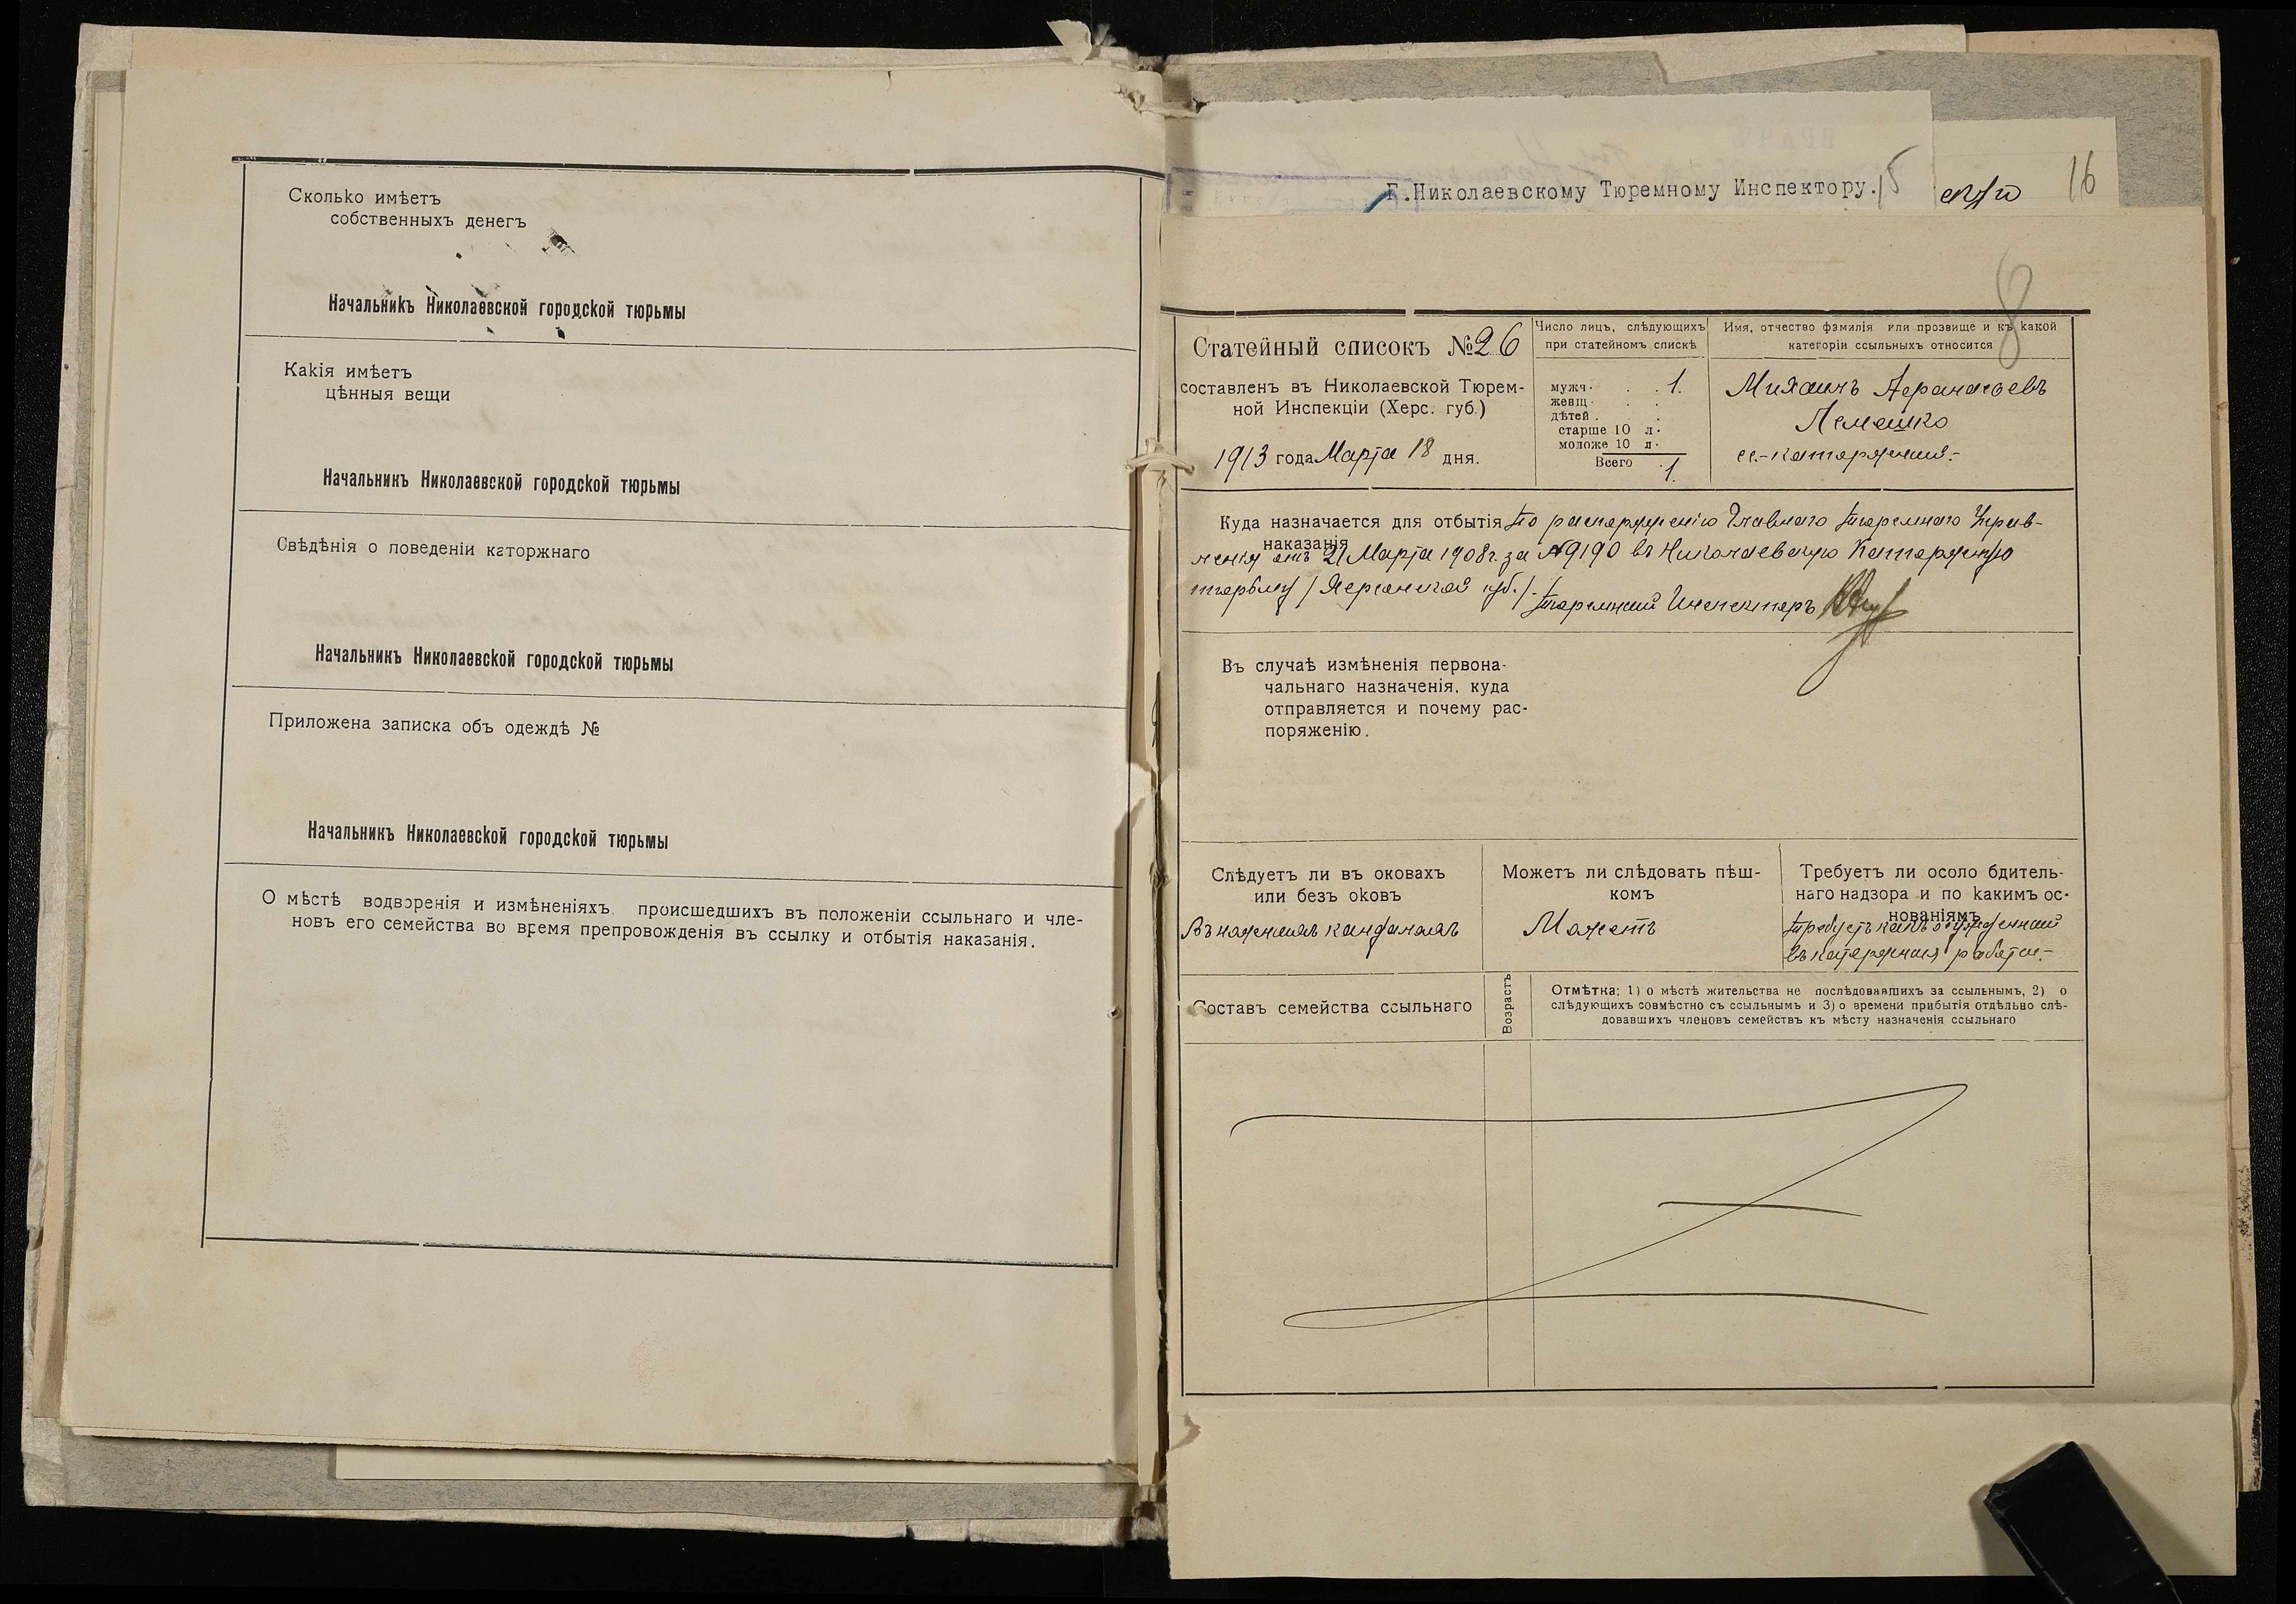 Сколько имѣетъ
собственныхъ денегъ
Начальникъ Николаевской городской тюрьмы
Какія имѣетъ
цѣнныя вещи
Начальникъ Николаевской городской тюрьмы
Свѣдѣнія о поведеніи каторжнаго
Начальникъ Николаевской городской тюрьмы
Приложена записка объ одеждѣ №
Начальникъ Николаевской городской тюрьмы
О мѣстѣ водворенія и измѣненіяхъ происшедшихъ въ положеніи ссыльнаго и чле-
новъ его семейства во время препровожденія въ ссылку и отбытія наказанія.
Г.Николаевскому Тюремному Инспектору. 15
16
8
Статейный списокъ № 26
составленъ въ Николаевской Тюрем-
ной Инспекціи (Херс. губ.)
1913 года Марта 18 дня.
Число лицъ, слѣдующихъ
при статейномъ спискѣ
мужч. . . 1.
женщ. . .
дѣтей . .
старше 10 л.
моложе 10 л.
Всего . 1.
Имя, отчество фамилія или прозвище и къ какой
категоріи ссыльныхъ относится
Михаилъ Афанасьевъ
Лемешко
сс.-каторжный.-
Куда назначается для отбытія
наказанія
По распоряженію Главнаго Тюремнаго Управ-
ленія отъ 21 Марта 1908 г. за №9190 въ Николаевскую Каторжную
тюрьму /Херсонской губ./.
Тюремный Инспекторъ
Въ случаѣ измѣненія первона-
чальнаго назначенія, куда
отправляется и почему рас-
поряженію.
Слѣдуетъ ли въ оковахъ
или безъ оковъ
Въ ножныхъ кандалахъ
Можетъ ли слѣдовать пѣш-
комъ
Можетъ
Требуетъ ли осоло бдитель-
наго надзора и по какимъ ос-
нованіямъ
Требуетъ какъ осужденный
въ каторжныя работы.-
Составъ семейства ссыльнаго
Возрастъ
Отмѣтка; 1) о мѣстѣ жительства не послѣдовавшихъ за ссыльнымъ, 2) о
слѣдующихъ совмѣстно съ ссыльнымъ и 3) о времени прибытія отдѣльно слѣ-
довавшихъ членовъ семействъ къ мѣсту назначенія ссыльнаго